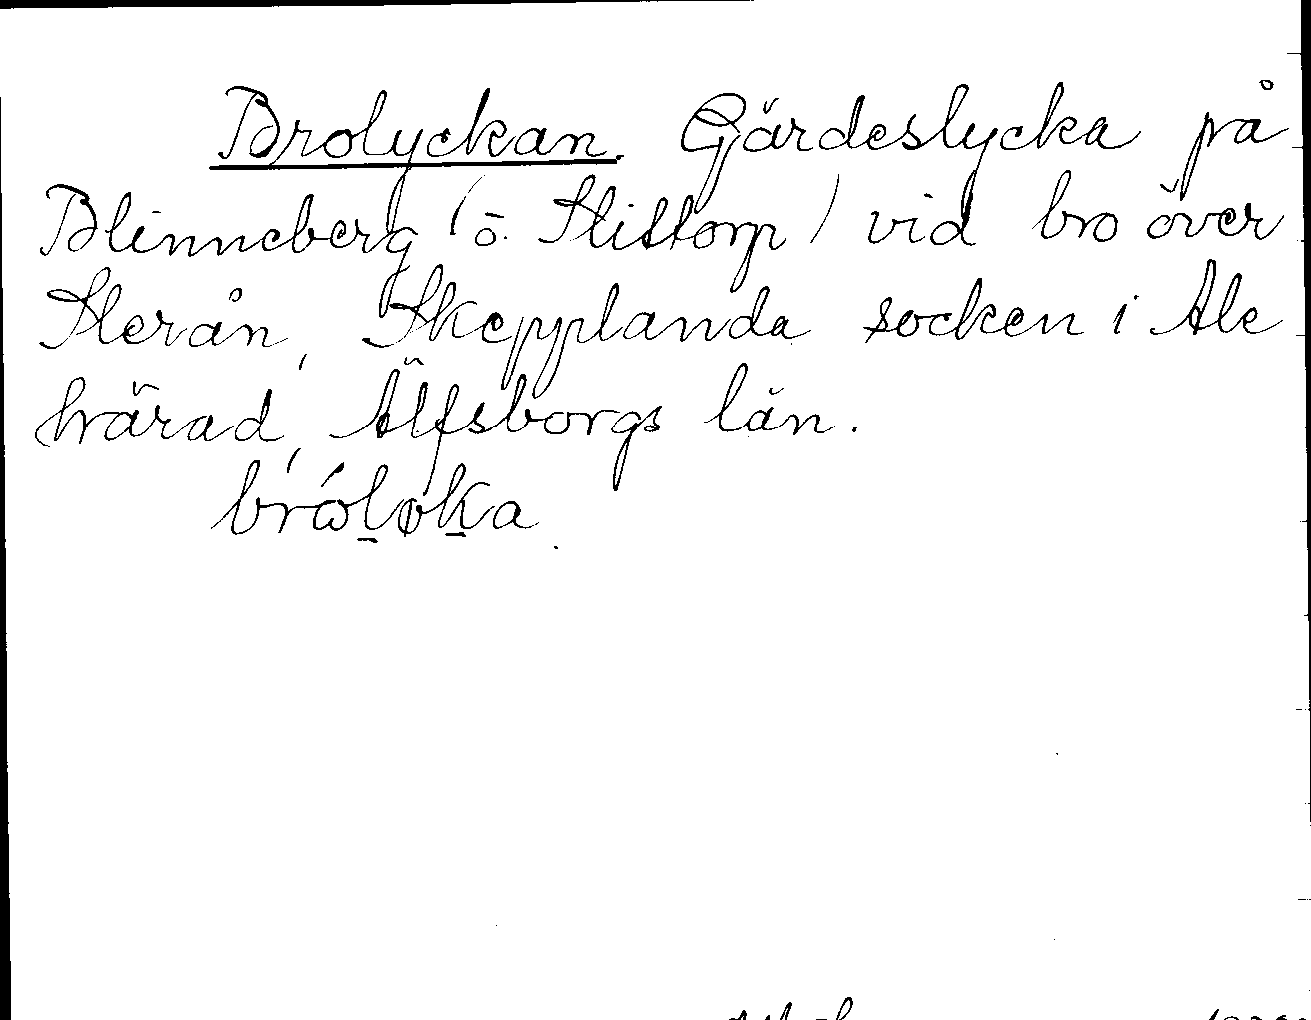 Brolyckan. Gärdeslycka på
Blinneberg (ö. Slittorp) vid bro över
Slerån, Skepplanda socken i Ale
härad, Älfsborgs län.